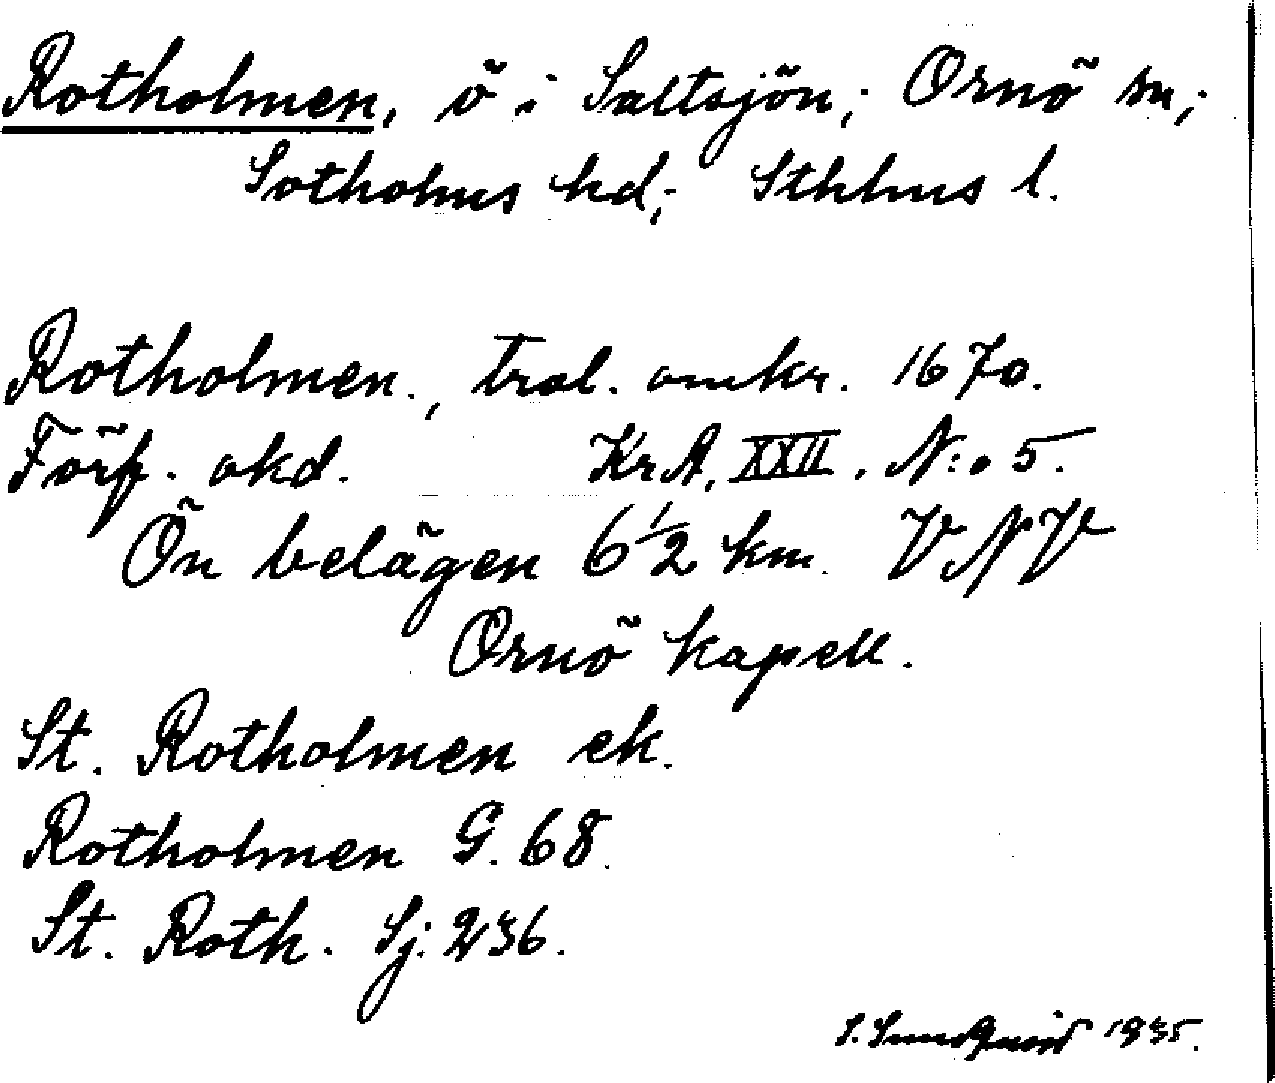 Rotholmen, ö i Saltsjön; Ornö sn;
Sotholms hd; Sthlms l.
Rotholmen., trol. omkr. 1670.
Förf. okd. KrA, XXII. N:o 5.
Ön belägen 6 1/2 km. VNV
Ornö kapell.
St. Rotholmen ek.
Rotholmen G. 68.
St. Roth. Sj. 236.
S. Sundquist 1935.